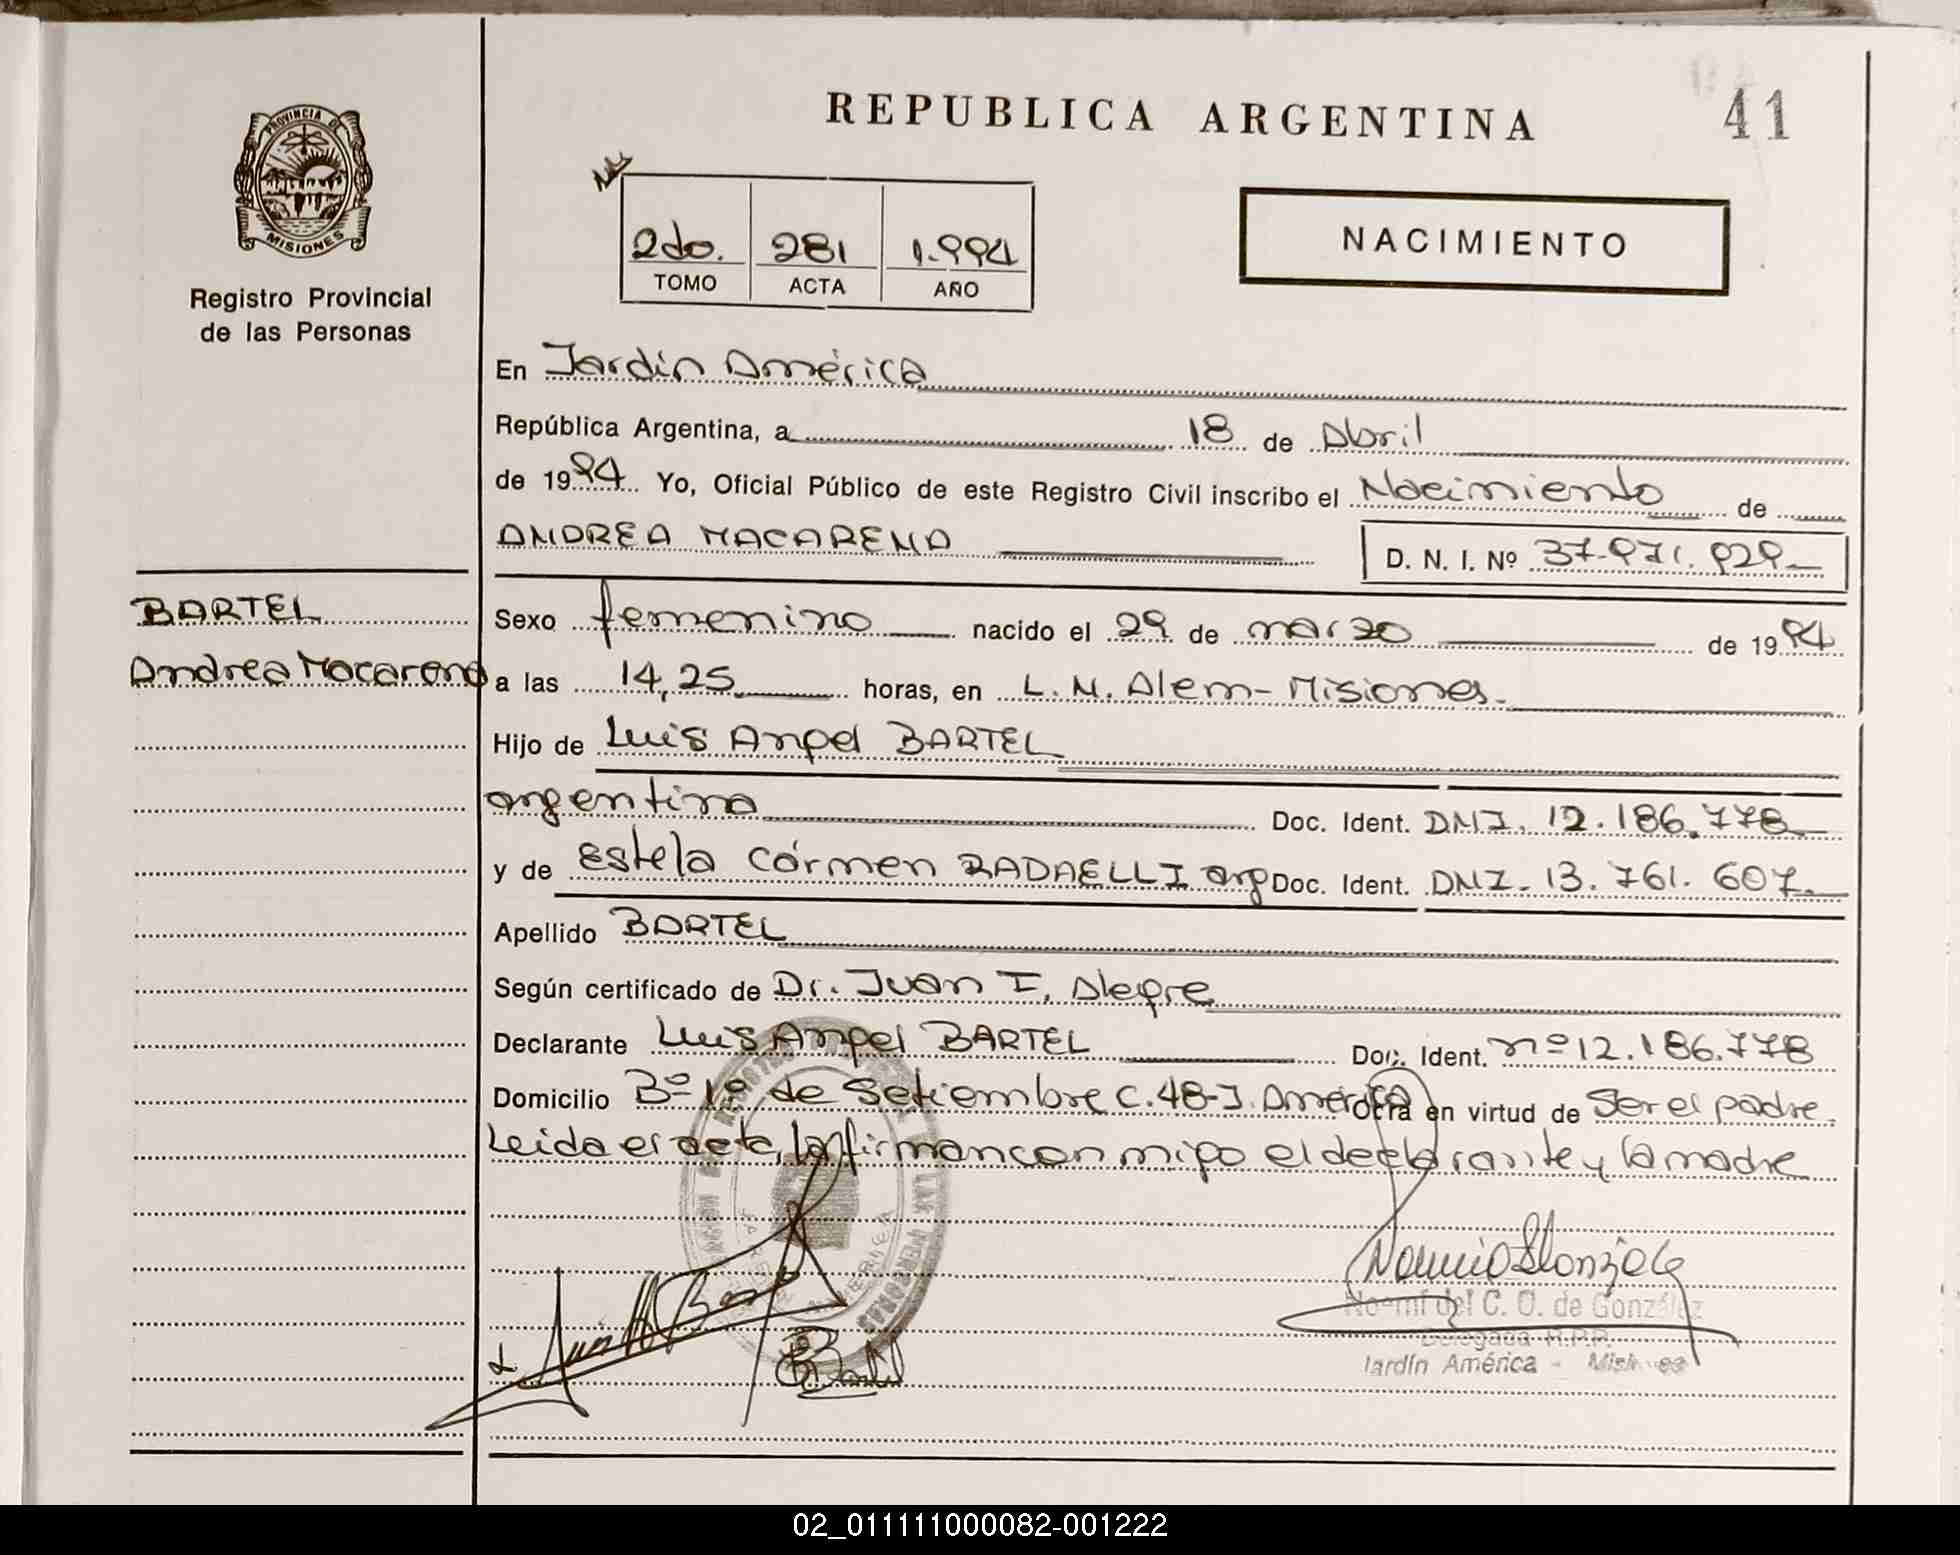 REPUBLICA ARGENTINA
41
PROVINCIA DE
MISIONES
Registro Provincial
de las Personas
2do. 281 1.994
TOMO ACTA AÑO
NACIMIENTO
En Jardín América
República Argentina, a 18 de Abril
de 1994 Yo, Oficial Público de este Registro Civil inscribo el Nacimiento de
ANDREA MACARENA D. N. I. Nº 37.971.929
BARTEL
Andrea Macarena
Sexo femenino nacido el 29 de marzo de 1994
a las 14,25 horas, en L. N. Alem - Misiones.
Hijo de Luis Angel BARTEL
argentina Doc. Ident. DNI. 12.186.778
y de Estela Cármen RADAELLI arg Doc. Ident. DNI. 13.761.607.
Apellido BARTEL
Según certificado de Dr. Juan I. Alegre
Declarante Luis Angel BARTEL Doc. Ident. nº 12.186.778
Domicilio Bº 1º de Setiembre C.48-J. América Obra en virtud de Ser el padre.
Leida el acta, la firman conmigo el declarante y la madre
Noemí del C. O. de González
Delegada R.P.P.
Jardín América - Misiones
02_011111000082-001222